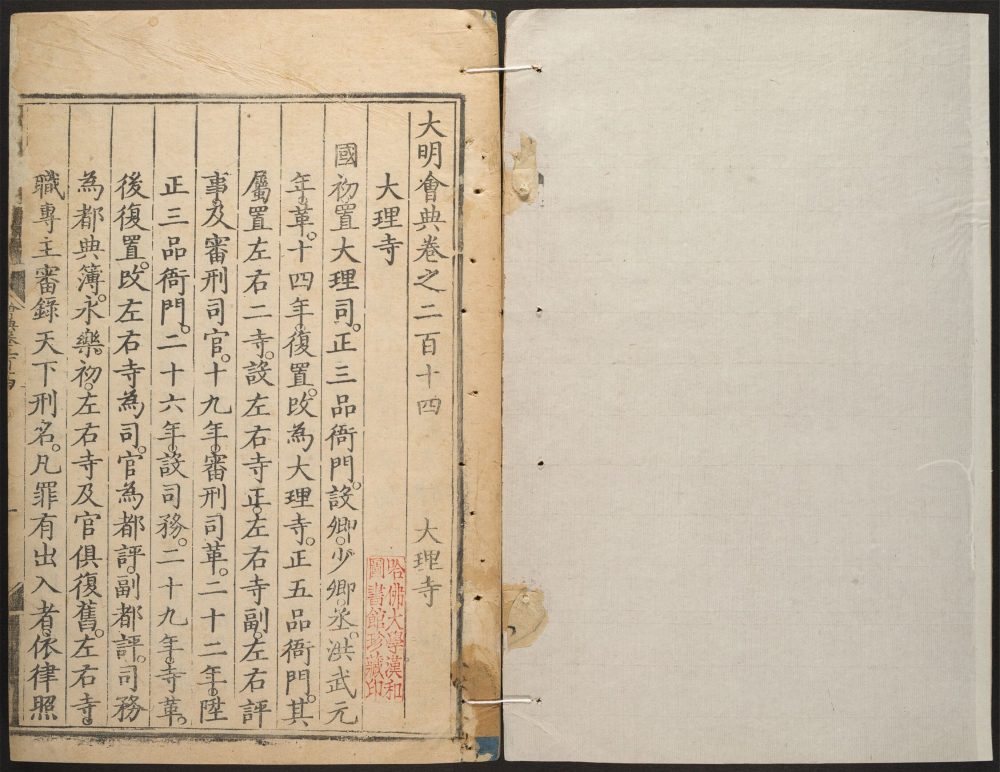 大明會典卷之二百十四 大理寺
大理寺
國初置大理司。正三品衙門。設卿。少卿。丞。洪武元
年。革。十四年。復置。改為大理寺。正五品衙門。其
屬置左右二寺。設左右寺正。左右寺副。左右評
事。及審刑司官。十九年。審刑司革。二十二年。陞
正三品衙門。二十六年。設司務。二十九年。寺革。
後復置。改左右寺為司。官為都評。副都評。司務
為都典簿。永樂初。左右寺及官俱復舊。左右寺。
職專主審錄天下刑名。凡罪有出入者。依律照
哈佛大學漢和
圖書館珍藏印